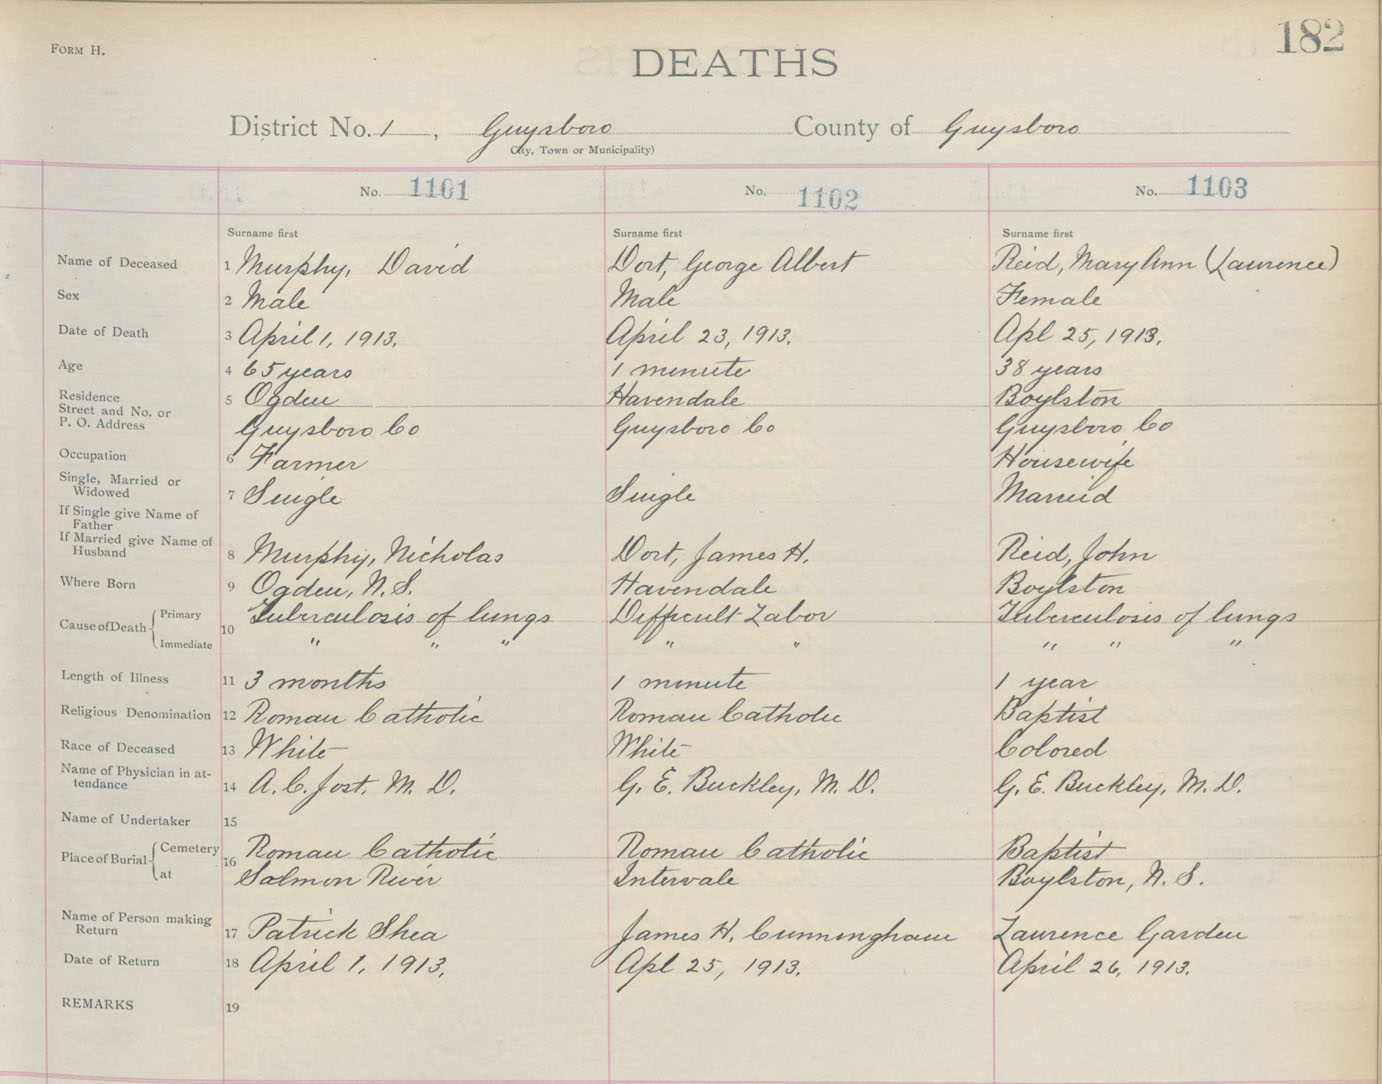 182
FORM H.
DEATHS
District No. 1, Guysboro County of Guysboro
City, Town or Municipality)
No. 1101 No. 1102 No. 1103
Surname first Surname first Surname first
Name of Deceased 1 Murphy, David Dort, George Albert Reid, Mary Ann (Laurence)
Sex 2 Male Male Female
Date of Death 3 April 1, 1913. April 23, 1913. Apl 25, 1913.
Age 4 65 years 1 minute 38 years
Residence 5 Ogden Havendale Boylston
Street and No. or
P. O. Address Guysboro Co Guysboro Co Guysboro Co
Occupation 6 Farmer Housewife
Single, Married or
Widowed 7 Single Single Married
If Single give Name of
Father
If Married give Name of
Husband 8 Murphy, Nicholas Dort, James H. Reid, John
Where Born 9 Ogden, N.S. Havendale Boylston
Cause of Death Primary 10 Tuberculosis of lungs Difficult Labor Tuberculosis of lungs
Immediate " " " " " " " "
Length of Illness 11 3 months 1 minute 1 year
Religious Denomination 12 Roman Catholic Roman Catholic Baptist
Race of Deceased 13 White White Colored
Name of Physician in at-
tendance 14 A. C. Jost. M. D. G. E. Buckley, M. D. G. E. Buckley, M. D.
Name of Undertaker 15
Place of Burial Cemetery 16 Roman Catholic Roman Catholic Baptist
at Salmon River Intervale Boylston, N. S.
Name of Person making
Return 17 Patrick Shea James H. Cunningham Laurence Garden
Date of Return 18 April 1, 1913. Apl 25, 1913. April 26, 1913.
REMARKS 19